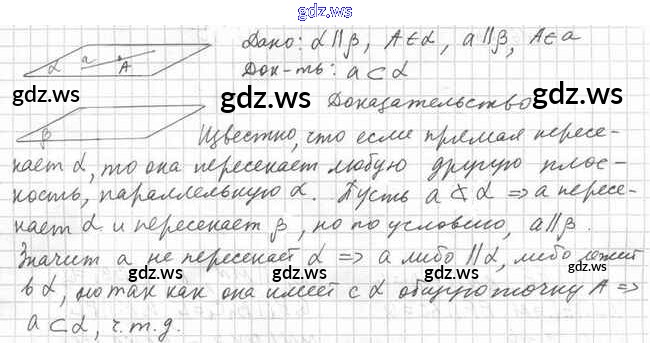 gdz.ws
Дано: α∥β, A∈α, a∥β, A∈a
α a A
Док-ть: a⊂α
gdz.ws gdz.ws gdz.ws
Доказательство
β
Известно, что если прямая пересе-
кает α, то она пересекает любую другую плос-
gdz.ws gdz.ws gdz.ws
кость, параллельную α. Пусть a⊄α ⇒ a пересе-
кает α и пересекает β, но по условию, a∥β.
Значит a не пересекает α ⇒ a либо ∥α, либо лежит
gdz.ws gdz.ws gdz.ws
в α, но так как она имеет с α общую точку A ⇒
a⊂α, ч.т.д.
gdz.ws gdz.ws